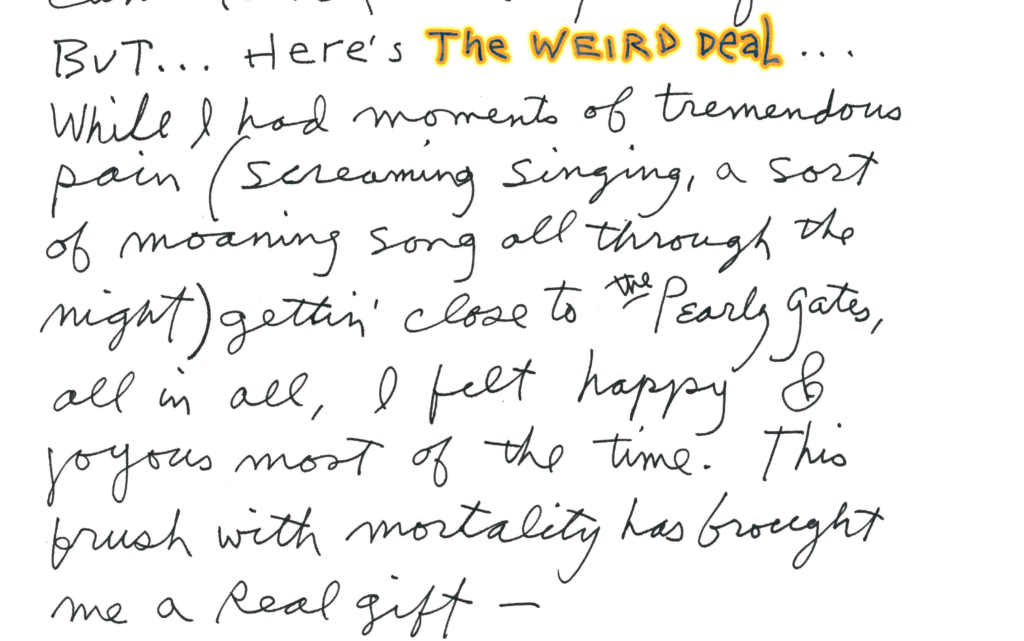 BUT... Here's The WEIRD DeaL ...
While I had moments of tremendous
pain (screaming singing, a sort
of moaning song all through the
night) gettin' close to the Pearly Gates,
all in all, I felt happy &
joyous most of the time. This
brush with mortality has brought
me a Real gift —